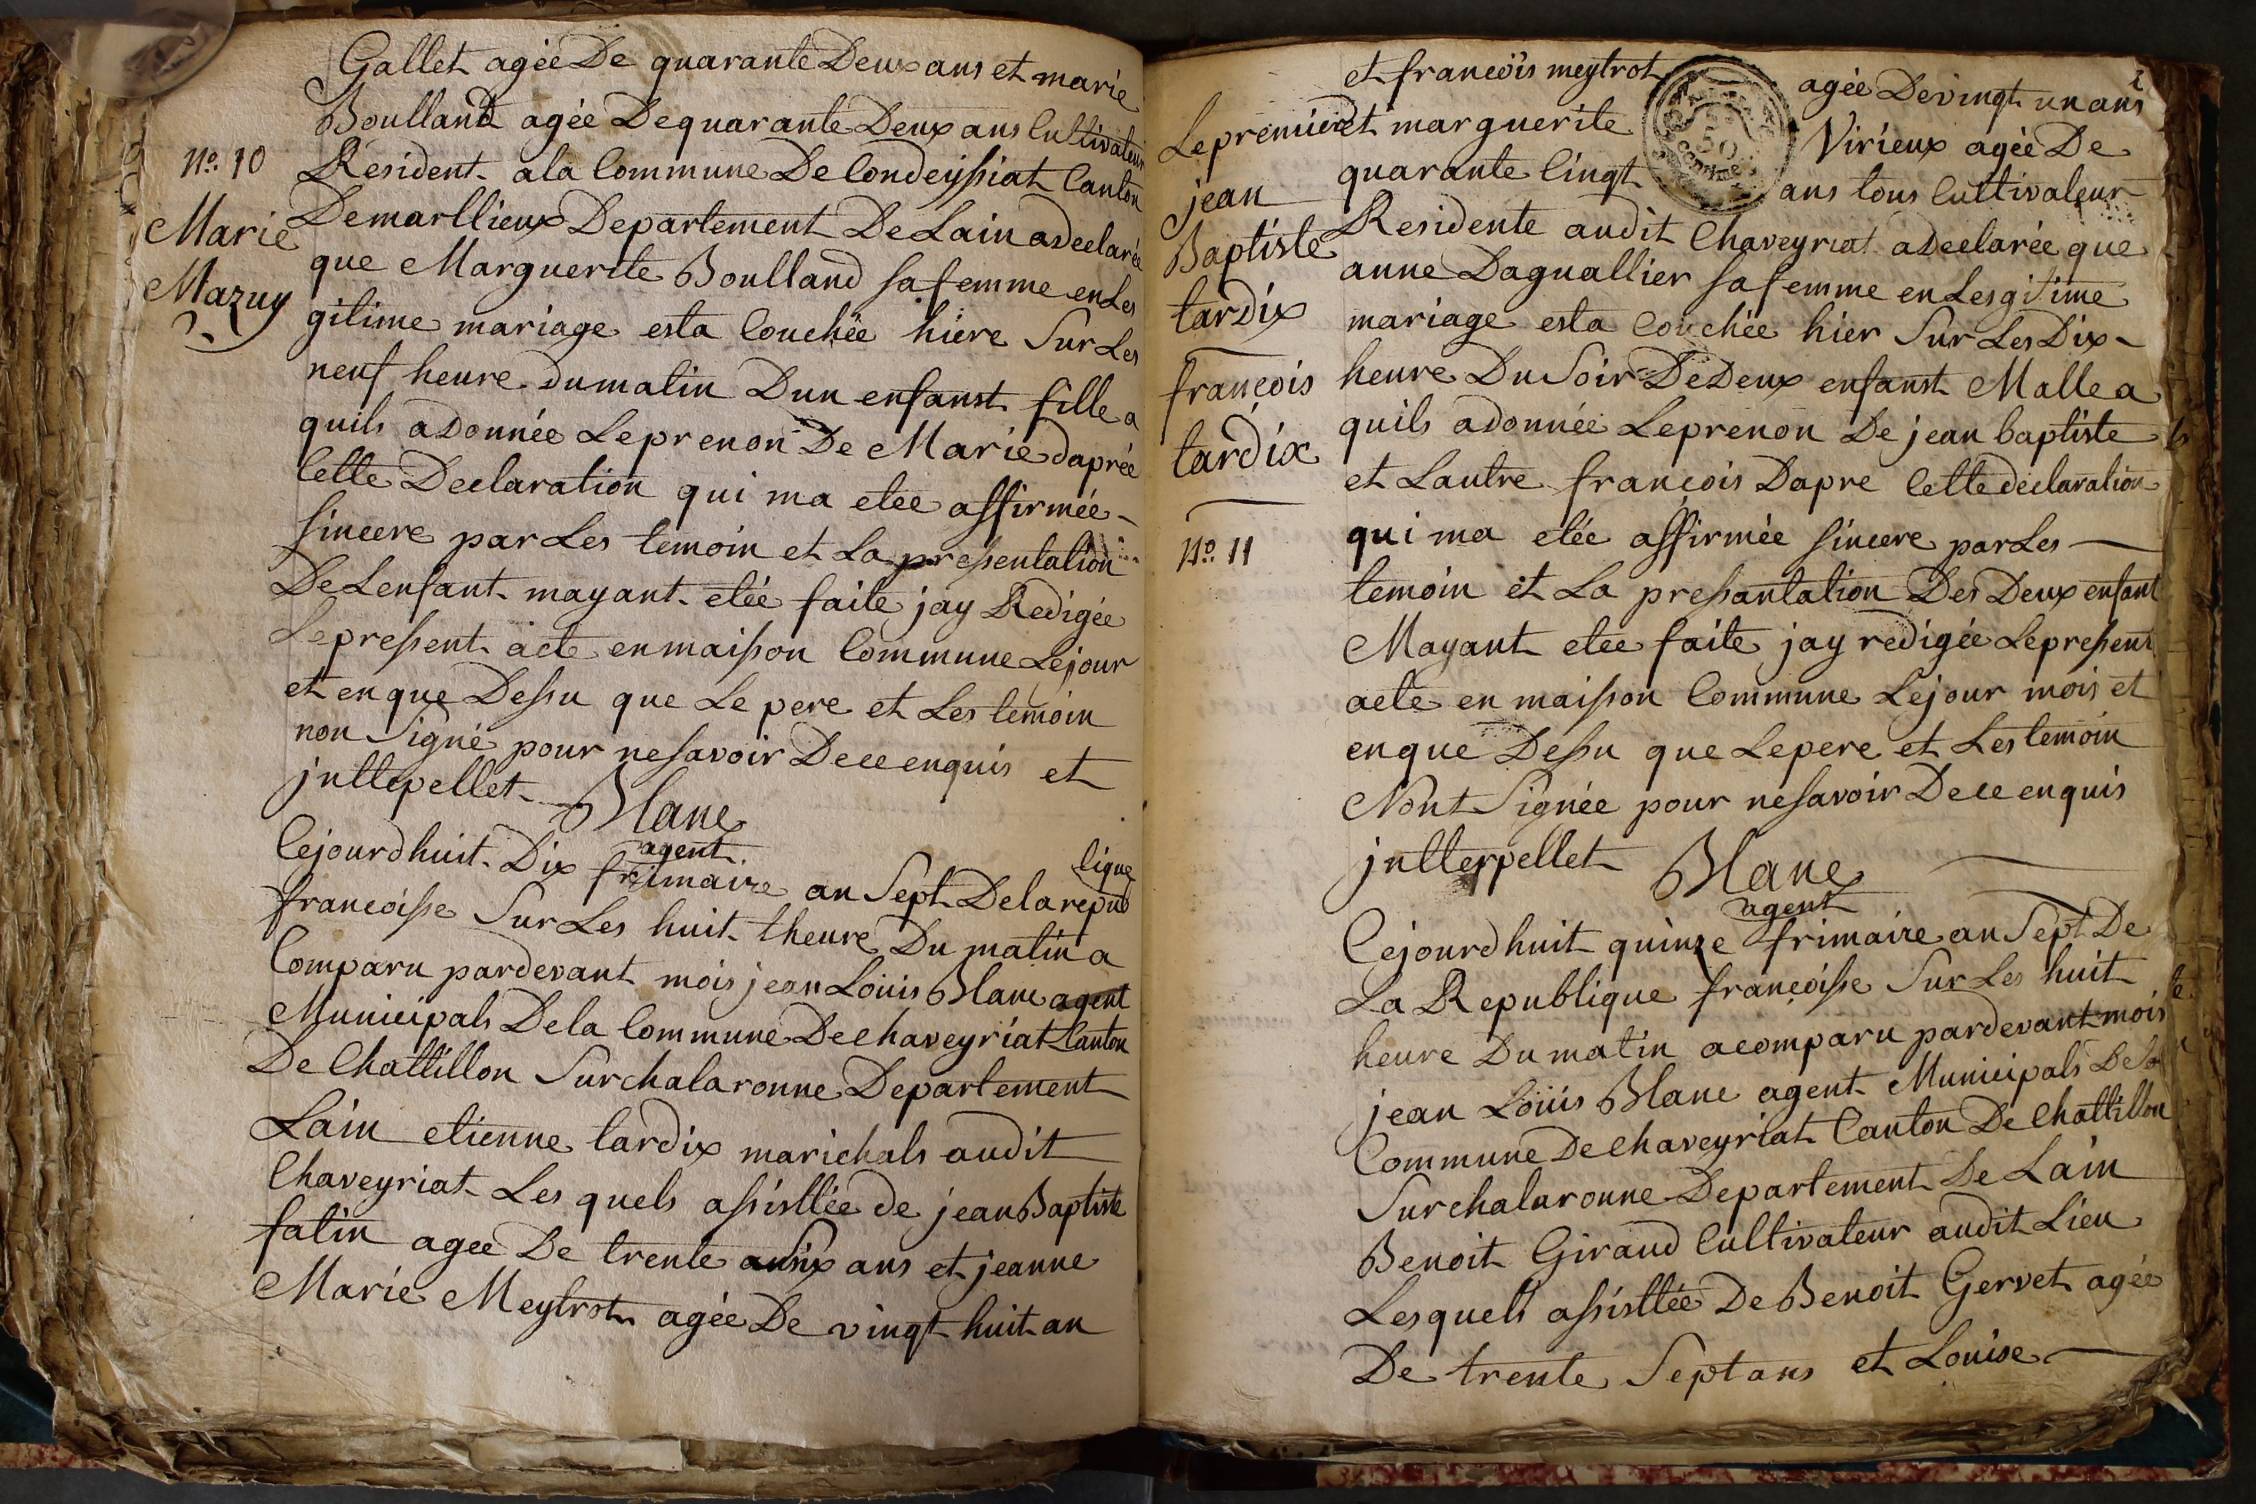 Gallet agée De quarante Deux ans et marie
Boulland agée De quarante Deux ans Cultivateur
N°. 10
Resident ala Commune De Condeyssiat Canton
Marie
Demarllieux Departement De Lain adeclarée
Mazuy
que Marguerite Boulland sa femme en Les
gitime mariage esta Couchée hiere Sur Les
neuf heure dumatin Dun enfanst fille a
quils adonnée Leprenon De Marie daprée
Cette Declaration qui ma etee affirmée
sincere par Les temoin et La pressentation
De Lenfant mayant etée faite jay Redigée
Lepressent acte enmaisson Commune Lejour
et en que Dessu que Le pere et Les temoin
non Signé pour nesavoir Dece enquis et
jnttepellet Blanc
agent
Cejourdhuit Dix frimaire an Sept Dela repub
lique
francoisse Sur Les huit theure Du matin a
Comparu pardevant mois jean Louis Blanc agent
Municipals Dela Commune Dechaveyriat Canton
De Chattillon Surchalaronne Departement
Lain etienne tardix marichals audit
Chaveyriat Les quels assisttée de jean Baptiste
fatin agee De trente six ans et jeanne
Marie Meytrot agée De vingt huit an
2
et francois meytrot agée De vingt un ans
Lepremier
et marguerite Virieux agée De
jean
quarante Cinqt ans tous Cultivateur
Baptiste
Residente audit Chaveyriat adeclarée que
tardix
anne Daguallier sa femme en Lesgitime
mariage esta Couchée hier Sur Les Dix
françois
heure Du Soir De Deux enfanst Malle a
tardix
quils adonnée Leprenon De jean baptiste
et Lautre francois Dapre Cette declaration
N°. 11
qui ma etée affirmée sincere par Les
temoin et La pressantation Des Deux enfant
Mayant etee faite jay redigée Lepressent
acte en maisson Commune Lejour mois et
enque Dessu que Lepere et Les temoin
Nont Signée pour nesavoir Dece enquis
jntterpellet Blanc
agent
Cejourdhuit quinze frimaire an Sept De
La Republique françoisse Sur Les huit
heure Du matin acomparu pardevant mois
jean Louis Blanc agent Municipals De La
Commune De chaveyriat Canton De Chattillon
Surchalaronne Departement De Lain
Benoit Giraud Cultivateur audit Lieu
Lesquels assisttée De Benoit Gervet agée
De trente Sept ans et Louise